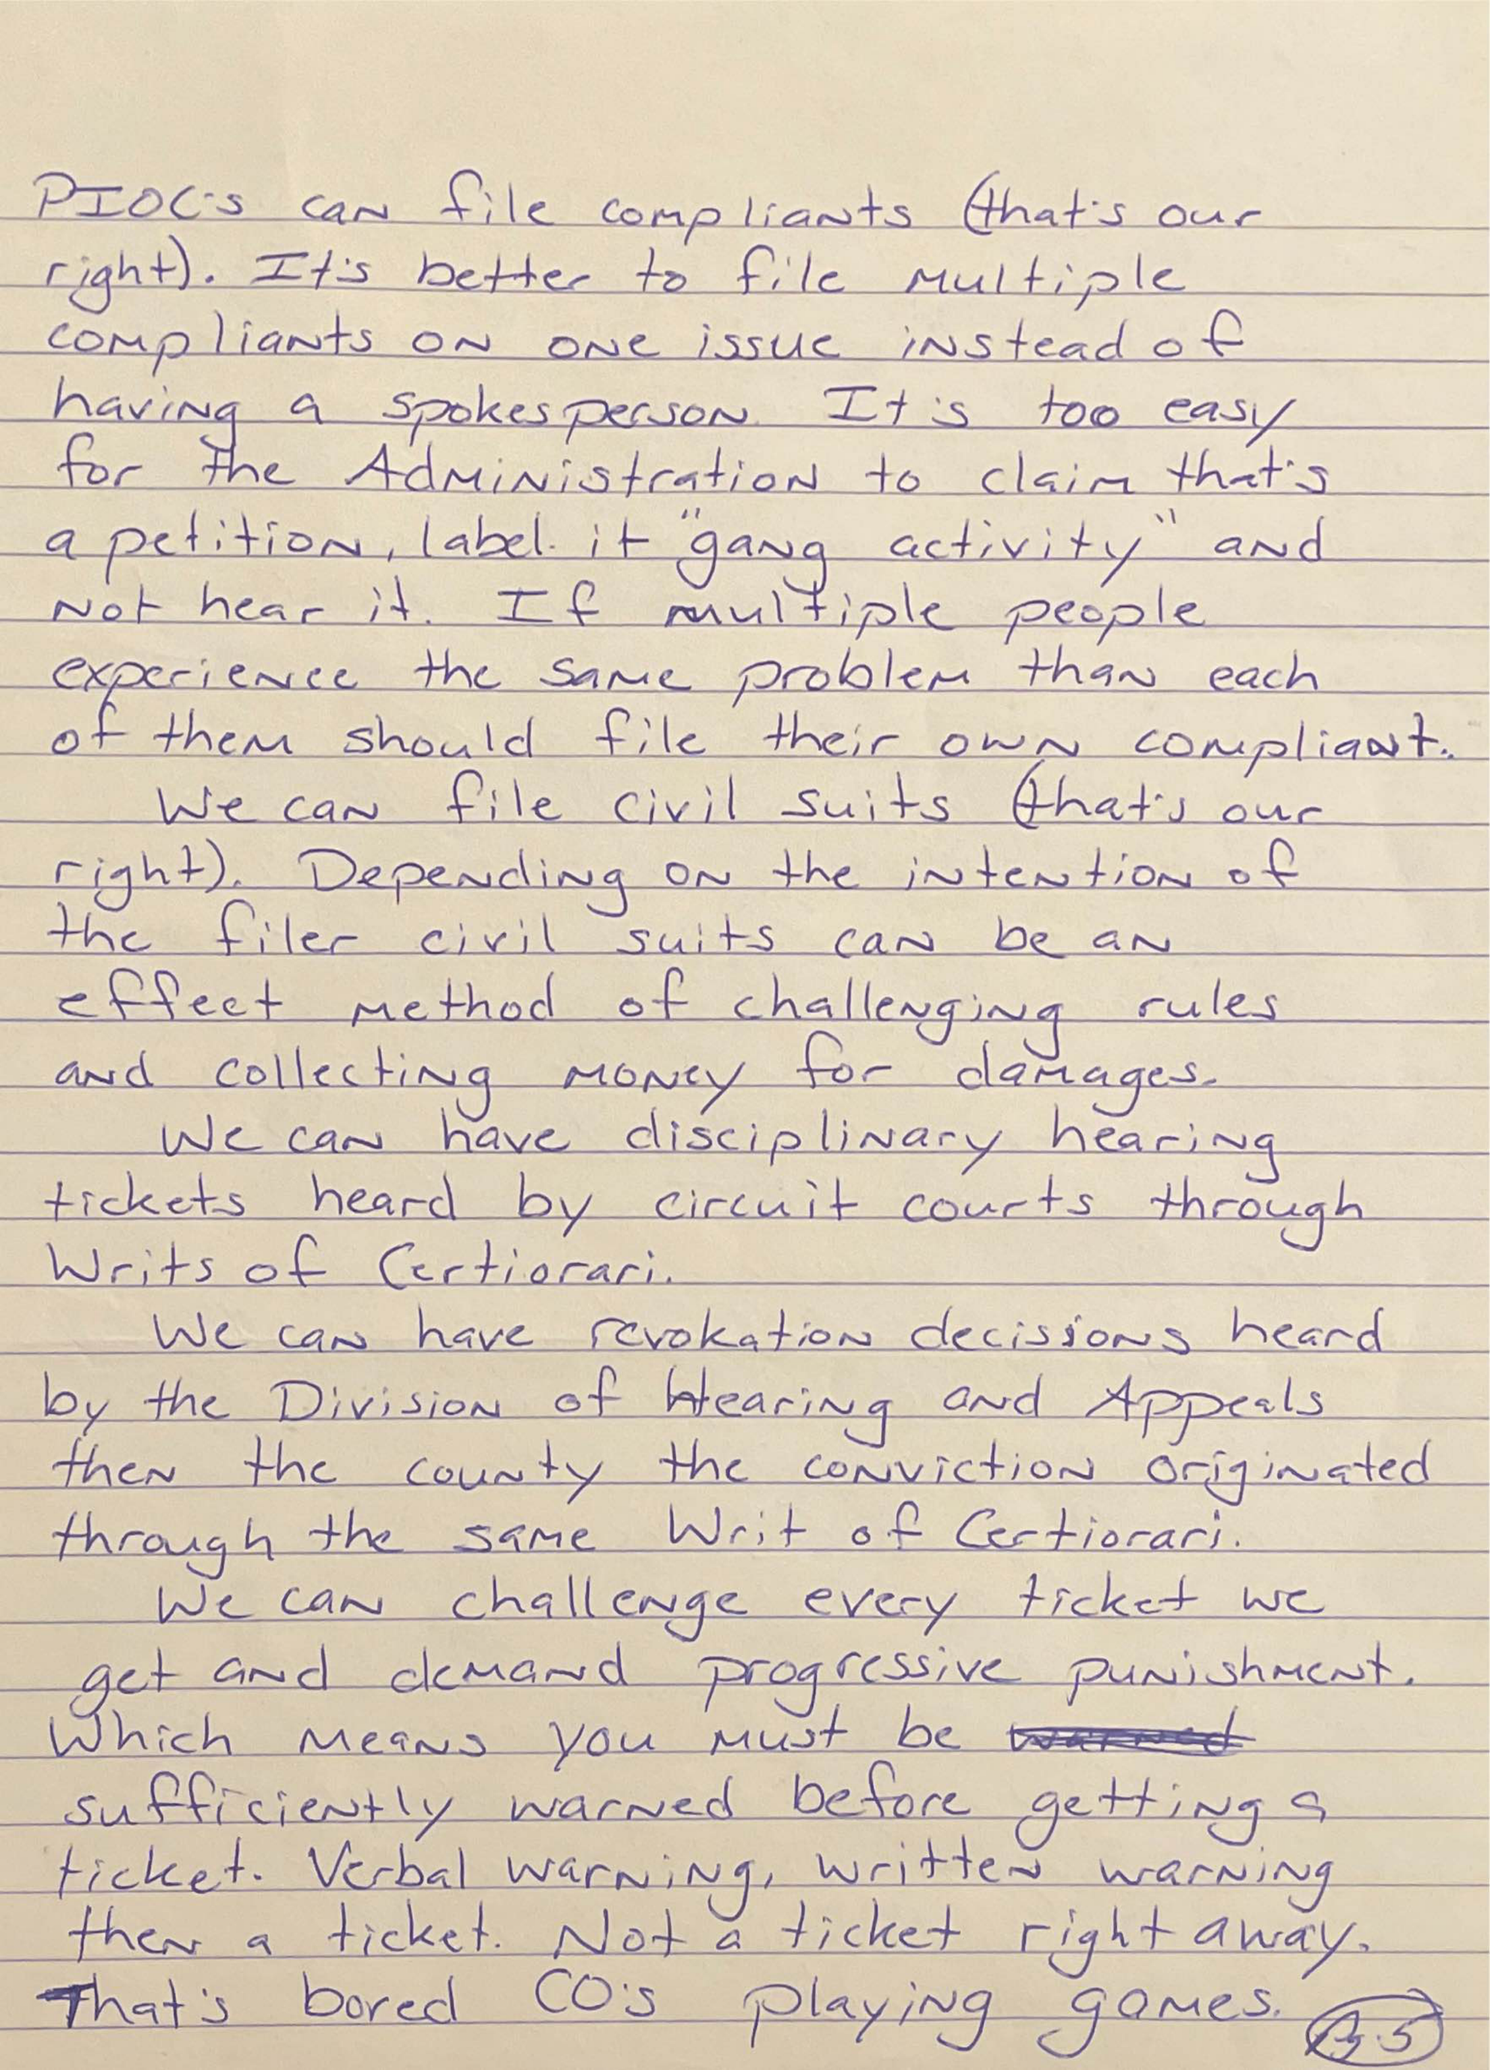 PIOC's can file compliants (that's our
right). It's better to file multiple
compliants on one issue instead of
having a spokesperson. It's too easy
for the Administration to claim that's
a petition, label it "gang activity" and
not hear it. If multiple people
experience the same problem than each
of them should file their own compliant.
We can file civil suits (that's our
right). Depending on the intention of
the filer civil suits can be an
effect method of challenging rules
and collecting money for damages.
We can have disciplinary hearing
tickets heard by circuit courts through
Writs of Certiorari.
We can have revokation decisions heard
by the Division of Hearing and Appeals
then the county the conviction originated
through the same Writ of Certiorari.
We can challenge every ticket we
get and demand progressive punishment.
Which means you must be warned
sufficiently warned before getting a
ticket. Verbal warning, written warning
then a ticket. Not a ticket right away.
That's bored CO's playing games.
Pg. 5